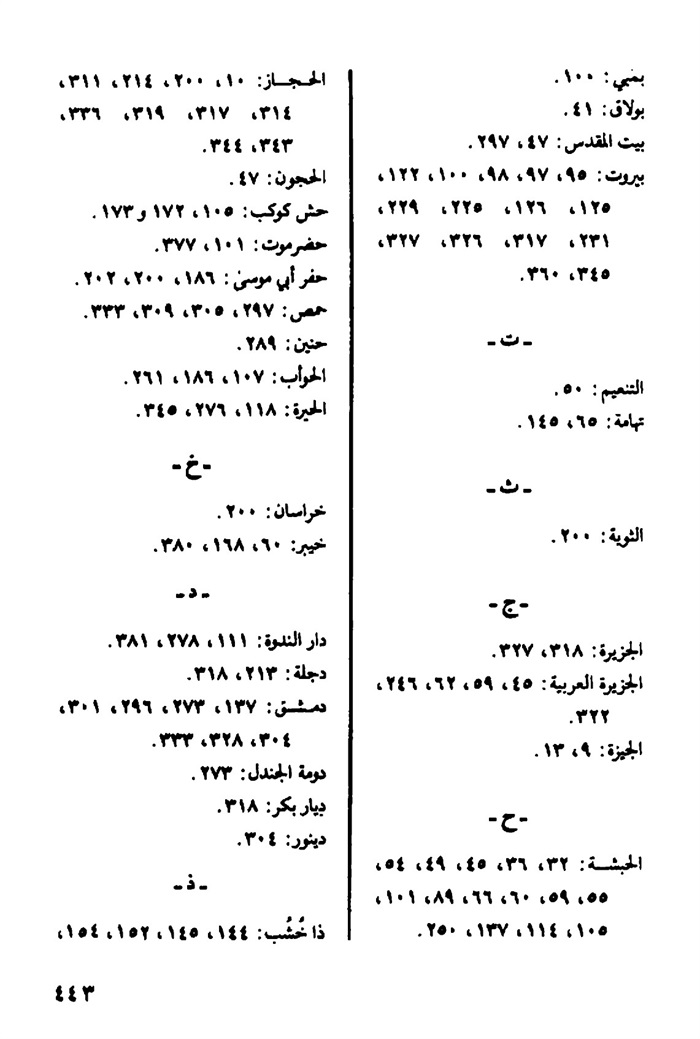 بمبي: ١٠٠.
بولاق: ٤١.
بيت المقدس: ٤٧، ٢٩٧.
بيروت: ٩٥، ٩٧، ٩٨، ١٠٠، ١٢٢،
١٢٥، ١٢٦، ٢٢٥، ٢٢٩،
٢٣١، ٣١٧، ٣٢٦، ٣٢٧،
٣٤٥، ٣٦٠.
- ت -
التنعيم: ٥٠.
تهامة: ٦٥، ١٤٥.
- ث -
الثوية: ٢٠٠.
- ج -
الجزيرة: ٣١٨، ٣٢٧.
الجزيرة العربية: ٤٥، ٥٩، ٦٢، ٢٤٦،
٣٢٢.
الجيزة: ٩، ١٣.
- ح -
الحبشـة: ٣٢، ٣٦، ٤٥، ٤٩، ٥٤،
٥٥، ٥٩، ٦٠، ٦٦، ٨٩، ١٠١،
١٠٥، ١١٤، ١٣٧، ٢٥٠.
الحـجـاز: ١٠، ٢٠٠، ٢١٤، ٣١١،
٣١٤، ٣١٧، ٣١٩، ٣٣٦،
٣٤٣، ٣٤٤.
الحجون: ٤٧.
حش كوكب: ١٠٥، ١٧٢ و١٧٣.
حضرموت: ١٠١، ٣٧٧.
حفر أبي موسىٰ: ١٨٦، ٢٠٠، ٢٠٢.
حمص: ٢٩٧، ٣٠٥، ٣٠٩، ٣٣٣.
حنين: ٢٨٩.
الحوأب: ١٠٧، ١٨٦، ٢٦١.
الحيرة: ١١٨، ٢٧٦، ٣٤٥.
- خ -
خراسان: ٢٠٠.
خيبر: ٦٠، ١٦٨، ٣٨٠.
- د -
دار الندوة: ١١١، ٢٧٨، ٣٨١.
دجلة: ٢١٣، ٣١٨.
دمشـق: ١٣٧، ٢٧٣، ٢٩٦، ٣٠١،
٣٠٤، ٣٢٨، ٣٣٣.
دومة الجندل: ٢٧٣.
ديار بكر: ٣١٨.
دينور: ٣٠٤.
- ذ -
ذا خُشُب: ١٤٤، ١٤٥، ١٥٢، ١٥٤،
٤٤٣